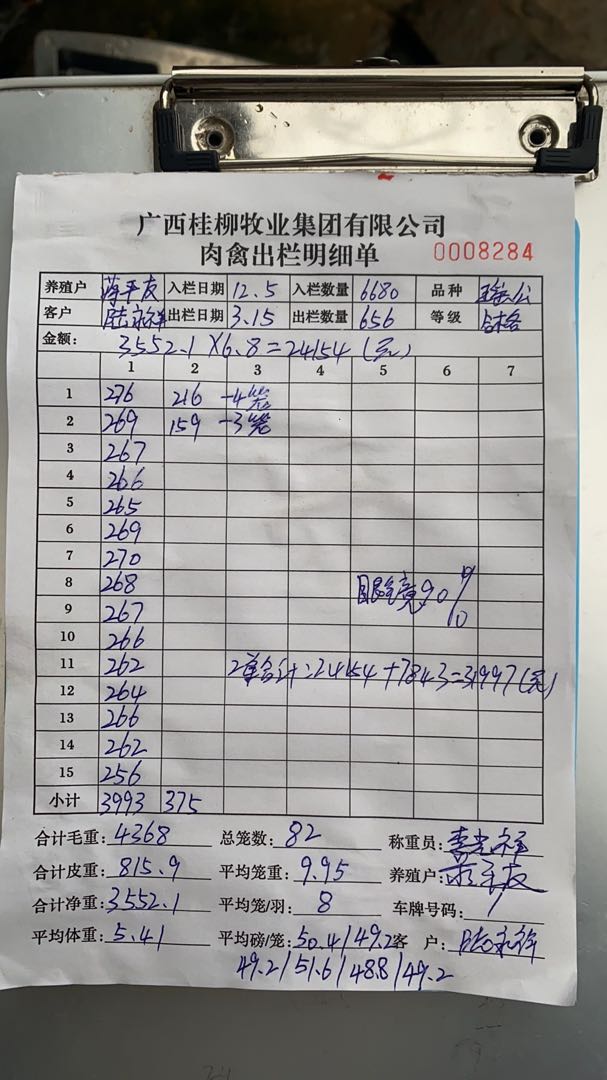 广西桂柳牧业集团有限公司
肉禽出栏明细单 0008284
养殖户 蒋平友 入栏日期 12.5 入栏数量 6680 品种
客户 陆永祥 出栏日期 3.15 出栏数量 656 等级 合格
金额: 3552.1×6.8=24154(元)
1 2 3 4 5 6 7
1 276 216 -4笼
2 269 159 -3笼
3 267
4 266
5 265
6 269
7 270
8 268 眼镜90%
9 267
10 266
11 262 2单合计:24154+7843=31997(元)
12 264
13 266
14 262
15 256
小计 3993 375
合计毛重: 4368 总笼数: 82 称重员: 李光祥
合计皮重: 815.9 平均笼重: 9.95 养殖户: 蒋平友
合计净重: 3552.1 平均笼/羽: 8 车牌号码: /
平均体重: 5.41 平均磅/笼: 50.4/49.2 客 户: 陆永祥
49.2/51.6/48.8/49.2